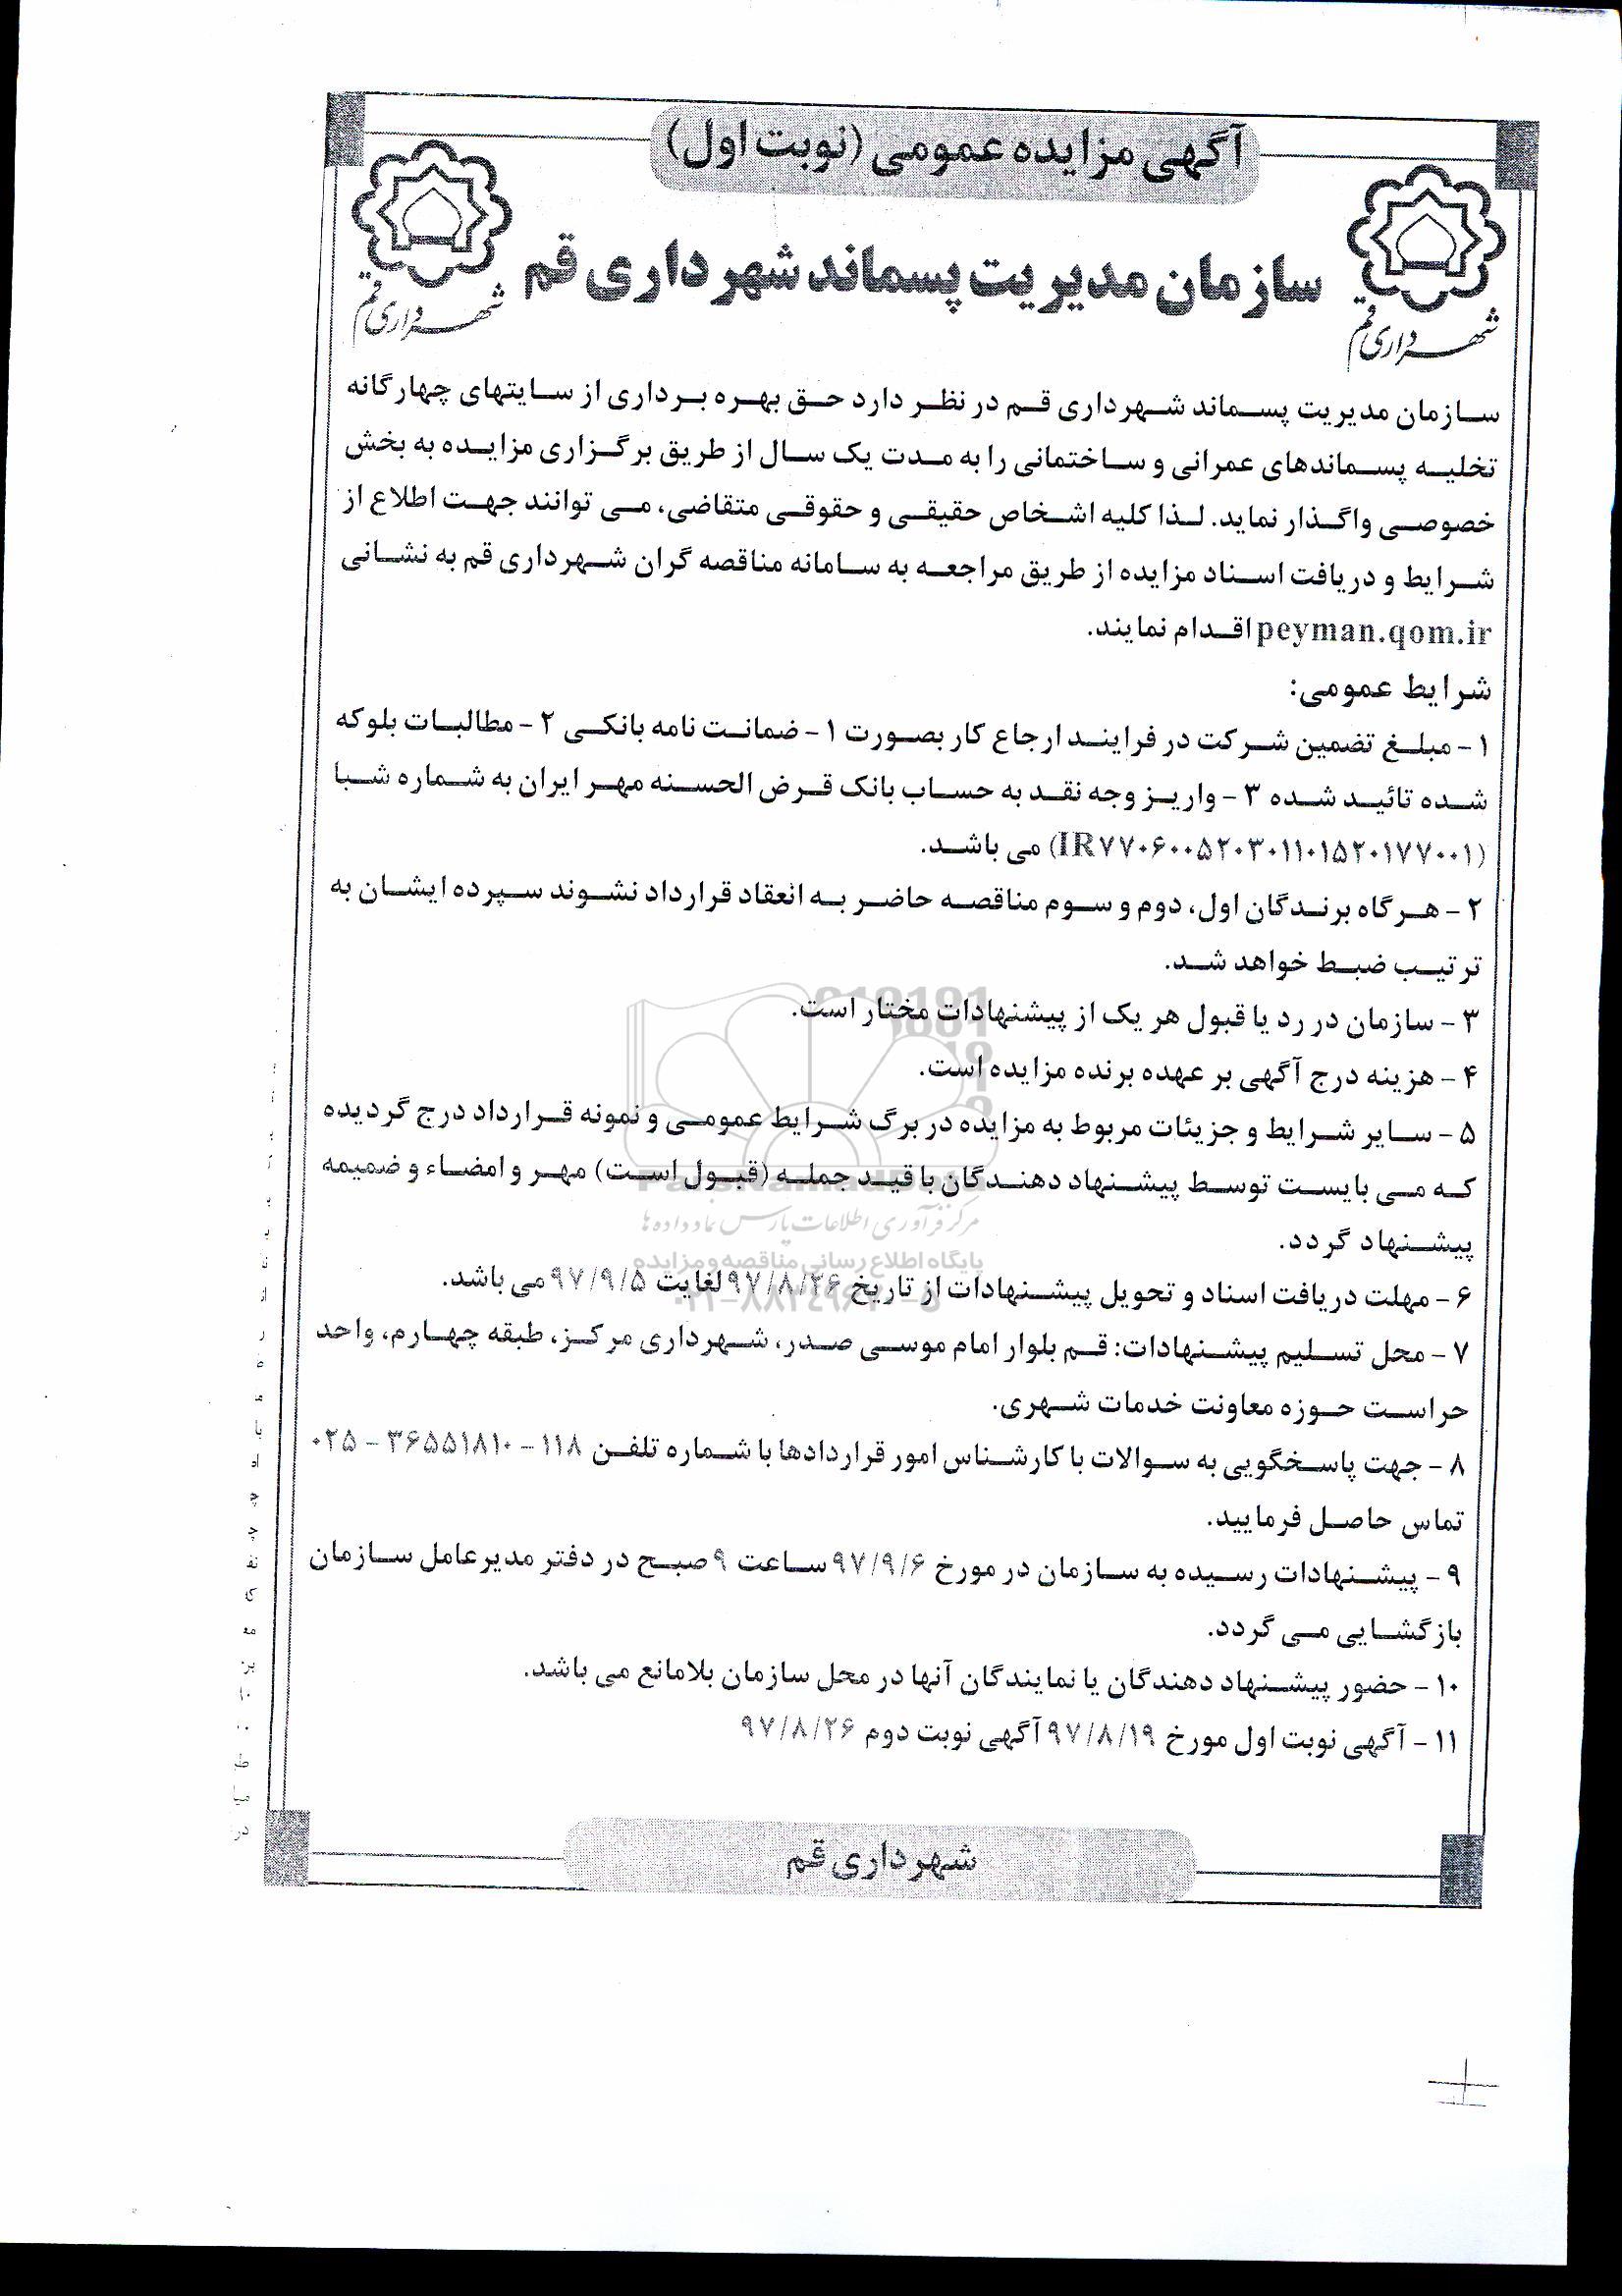 آگهی مزایده عمومی (نوبت اول)
سازمان مدیریت پسماند شهرداری قم
شهرداری قم
شهرداری قم
سازمان مدیریت پسماند شهرداری قم در نظر دارد حق بهره برداری از سایتهای چهارگانه
تخلیه پسماندهای عمرانی و ساختمانی را به مدت یک سال از طریق برگزاری مزایده به بخش
خصوصی واگذار نماید. لذا کلیه اشخاص حقیقی و حقوقی متقاضی، می توانند جهت اطلاع از
شرایط و دریافت اسناد مزایده از طریق مراجعه به سامانه مناقصه گران شهرداری قم به نشانی
peyman.qom.ir اقدام نمایند.
شرایط عمومی:
۱- مبلغ تضمین شرکت در فرایند ارجاع کار بصورت ۱- ضمانت نامه بانکی ۲- مطالبات بلوکه
شده تائید شده ۳- واریز وجه نقد به حساب بانک قرض الحسنه مهر ایران به شماره شبا
(IR۷۷۰۶۰۰۵۲۰۳۰۱۱۰۱۵۲۰۱۷۷۰۰۱) می باشد.
۲- هرگاه برندگان اول، دوم و سوم مناقصه حاضر به انعقاد قرارداد نشوند سپرده ایشان به
ترتیب ضبط خواهد شد.
۳- سازمان در رد یا قبول هر یک از پیشنهادات مختار است.
۴- هزینه درج آگهی بر عهده برنده مزایده است.
۵- سایر شرایط و جزیئات مربوط به مزایده در برگ شرایط عمومی و نمونه قرارداد درج گردیده
که می بایست توسط پیشنهاد دهندگان با قید جمله (قبول است) مهر و امضاء و ضمیمه
مرکز فرآوری اطلاعات پارس نماد داده ها
پیشنهاد گردد.
پایگاه اطلاع رسانی مناقصه و مزایده
۶- مهلت دریافت اسناد و تحویل پیشنهادات از تاریخ ۹۷/۸/۲۶ لغایت ۹۷/۹/۵ می باشد.
۷- محل تسلیم پیشنهادات: قم بلوار امام موسی صدر، شهرداری مرکز، طبقه چهارم، واحد
حراست حوزه معاونت خدمات شهری.
۸- جهت پاسخگویی به سوالات با کارشناس امور قراردادها با شماره تلفن ۱۱۸ - ۳۶۵۵۱۸۱۰ - ۰۲۵
تماس حاصل فرمایید.
۹- پیشنهادات رسیده به سازمان در مورخ ۹۷/۹/۶ ساعت ۹ صبح در دفتر مدیرعامل سازمان
بازگشایی می گردد.
۱۰- حضور پیشنهاد دهندگان یا نمایندگان آنها در محل سازمان بلامانع می باشد.
۱۱- آگهی نوبت اول مورخ ۹۷/۸/۱۹ آگهی نوبت دوم ۹۷/۸/۲۶
شهرداری قم